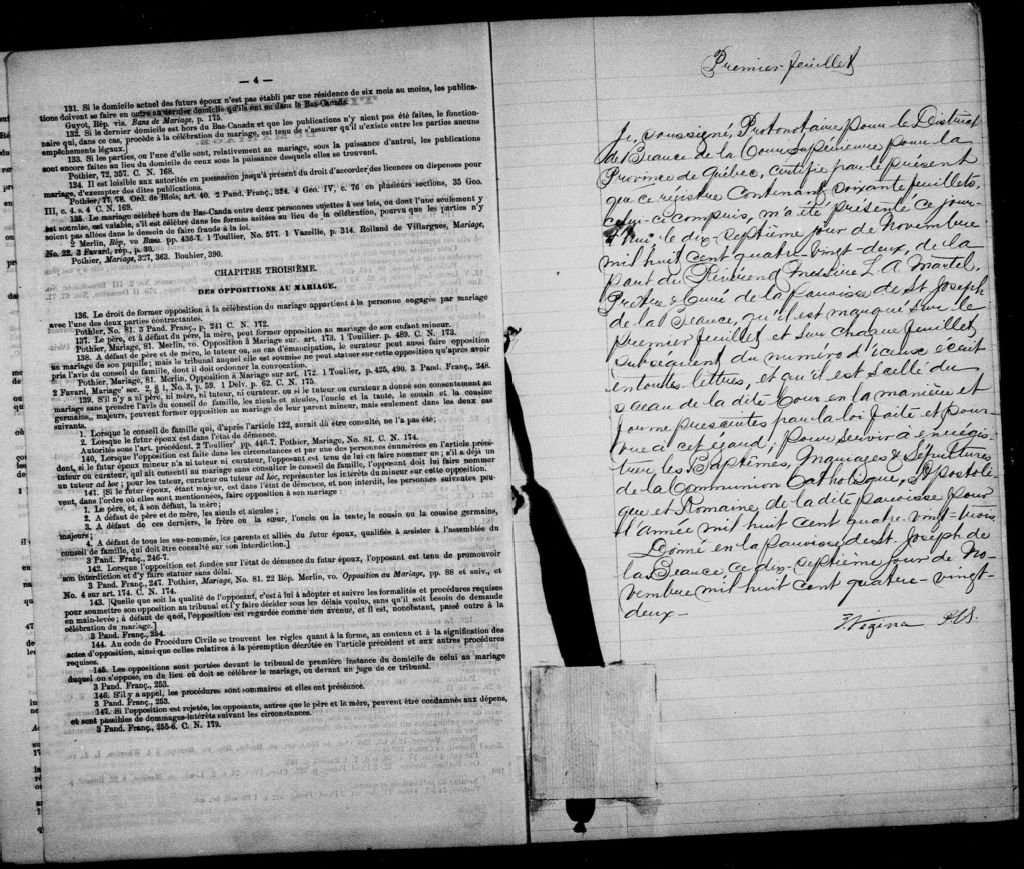 — 4 —
131. Si le domicile actuel des futurs époux n'est pas établi par une résidence de six mois au moins, les publica-
tions doivent se faire en outre au dernier domicile qu'ils ont eu dans le Bas-Canada.
Guyot, Rép. vis. Bans de Mariage, p. 175.
132. Si le dernier domicile est hors du Bas-Canada et que les publications n'y aient pas été faites, le fonction-
naire qui, dans ce cas, procède à la célébration du mariage, est tenu de s'assurer qu'il n'existe entre les parties aucuns
empêchements légaux.
133. Si les parties, ou l'une d'elle sont, relativement au mariage, sous la puissance d'autrui, les publications
sont encore faites au lieu du domicile de ceux sous la puissance desquels elles se trouvent.
Pothier, 72, 357. C. N. 168.
134. Il est loisible aux autorités en possession jusqu'à présent du droit d'accorder des licences ou dispenses pour
mariage, d'exempter des dites publications.
Pothier, 77, 78. Ord. de Blois, art. 40. 2 Pand. Franç., 324. 4 Geo. IV, c. 76 en plusieurs sections, 35 Geo.
III, c. 4. s. 4 C. N. 169.
135. Le mariage célébré hors du Bas-Canada entre deux personnes sujettes à ses lois, ou dont l'une seulement y
est soumise, est valable, s'il est célébré dans les formes usitées au lieu de la célébration, pourvu que les parties n'y
soient pas allées dans le dessein de faire fraude à la loi.
2 Merlin, Rép, vo Bans. pp. 436-7. 1 Toullier, No. 577. 1 Vazeille, p. 314. Rolland de Villargues, Mariage,
No. 22. 3 Favard, rép., p. 30.
Pothier, Mariage, 327, 363. Bouhier, 390.
CHAPITRE TROISIÈME.
DES OPPOSITIONS AU MARIAGE.
136. Le droit de former opposition à la célébration du mariage appartient à la personne engagée par mariage
avec l'une des deux parties contractantes.
Pothier, No. 81. 3 Pand. Franç., p. 241 C. N. 172.
137. Le père, et à défaut du père, la mère, peut former opposition au mariage de son enfant mineur.
Pothier, Mariage, 81. Merlin, vo. Opposition à Mariage sur. art. 173. 1 Toullier. p. 489. C. N. 173.
138. A défaut de père et de mère, le tuteur ou, au cas d'émancipation, le curateur peut aussi faire opposition
au mariage de son pupille; mais le tribunal auquel elle est soumise ne peut statuer sur cette opposition qu'après avoir
pris l'avis du conseil de famille, dont il doit ordonner la convocation.
Pothier, Mariage, 81. Merlin, Opposition à Mariage sur art. 172. 1 Toullier, p. 425, 490. 3 Pand. Franç., 248.
2 Favard, Mariage' sec. 2, § 1, No. 3, p. 59. 1 Delv. p. 62. C. N. 175.
139. S'il n'y a ni père, ni mère, ni tuteur, ni curateur, ou si le tuteur ou curateur a donné son consentement au
mariage sans prendre l'avis du conseil de famille, les aïeuls et aïeules, l'oncle et la tante, le cousin et la cousine
germains, majeurs, peuvent former opposition au mariage de leur parent mineur, mais seulement dans les deux cas
suivants.
1. Lorsque le conseil de famille qui, d'après l'article 122, aurait dû être consulté, ne l'a pas été;
2. Lorsque le futur époux est dans l'état de démence.
Autorités sous l'art. précédent. 2 Toullier' pp. 446-7. Pothier, Mariage, No. 81. C. N. 174.
140, Lorsque l'opposition est faite dans les circonstances et par une des personnes énumérées en l'article précé-
dent, si le futur époux mineur n'a ni tuteur ni curateur, l'opposant est tenu de lui en faire nommer un; s'il a déjà un
tuteur ou curateur, qui ait consenti au mariage sans consulter le conseil de famille, l'opposant doit lui faire nommer
un tuteur ad hoc; pour les tuteur, curateur ou tuteur ad hoc, représenter les intérêts du mineur sur cette opposition.
141. [Si le futur époux, étant majeur, est dans l'état de démence, et non interdit, les personnes suivantes peu-
vent, dans l'ordre où elles sont mentionnées, faire opposition à son mariage :
1. Le père, et, à son défaut, la mère;
2. A défaut de père et de mère, les aïeuls et aïeules;
3. A défaut de ces derniers, le frère ou la sœur, l'oncle ou la tante, le cousin ou la cousine germains,
majeurs;
4. A défaut de tous les sus-nommés, les parents et alliés du futur époux, qualifiés à assister à l'assemblée du
conseil de famille, qui doit être consulté sur son interdiction.]
3 Pand. Franç., 246-7.
142. Lorsque l'opposition est fondée sur l'état de démence du futur époux, l'opposant est tenu de promouvoir
son interdiction et d'y faire statuer sans délai.
3 Pand. Franç., 247. Pothier, Mariage, No. 81. 22 Rép. Merlin, vo. Opposition au Mariage, pp. 88 et suiv., et
No. 4 sur art. 174. C. N. 174.
143. [Quelque soit la qualité de l'opposant, c'est à lui à adopter et suivre les formalités et procédures requises
pour soumettre son opposition au tribunal et l'y faire décider sous les délais voulus, sans qu'il soit besoin de demande
en main-levée; à défaut de quoi, l'opposition est regardée comme non avenue, et il est, nonobstant, passé outre à la
célébration du mariage.]
3 Pand. Franç., 254.
144. Au code de Procédure Civile se trouvent les règles quant à la forme, au contenu et à la signification des
actes d'opposition, ainsi que celles relatives à la péremption décrétée en l'article précédent et aux autres procédures
requises.
145. Les oppositions sont portées devant le tribunal de première instance du domicile de celui au mariage
duquel on s'oppose, ou du lieu où doit se célébrer le mariage, ou devant un juge de ce tribunal.
3 Pand. Franç., 253.
146. S'il y a appel, les procédures sont sommaires et elles ont préséance.
3 Pand. Franç., 253.
147. Si l'opposition est rejetée, les opposants, autres que le père et la mère, peuvent être condamnés aux dépens,
et sont passibles de dommages-intérêts suivant les circonstances.
3 Pand. Franç., 255-6. C. N. 179.
Premier feuillet
Je, soussigné, Protonotaire pour le District
de Beauce de la Cour Supérieure pour la
Province de Québec, certifie par le présent
que ce régistre contenant soixante feuillets,
celui-ci compris, m'a été présenté ce jour-
d'hui, le dix-septième jour de Novembre
mil huit cent quatre-vingt-deux, de la
part du Révérend Messire L. A Martel,
Prêtre & Curé de la paroisse de St Joseph
de la Beauce, qu'il est marqué sur le
premier feuillet et sur chaque feuillet
subséquent du numéro d'iceux écrit
en toutes lettres, et qu'il est scellé du
sceau de la dite Cour en la manière et
forme prescrites par la loi faite et pour-
vue à cet égard; pour servir à enrégis-
trer les Baptêmes, Mariages & Sépultures
de la Communion Catholique, Apostoli-
que et Romaine, de la dite paroisse pour
l'année mil huit cent quatre-vingt-trois
Donné en la paroisse de St. Joseph de
la Beauce, ce dix-septième jour de No-
vembre mil huit cent quatre-vingt-
deux —